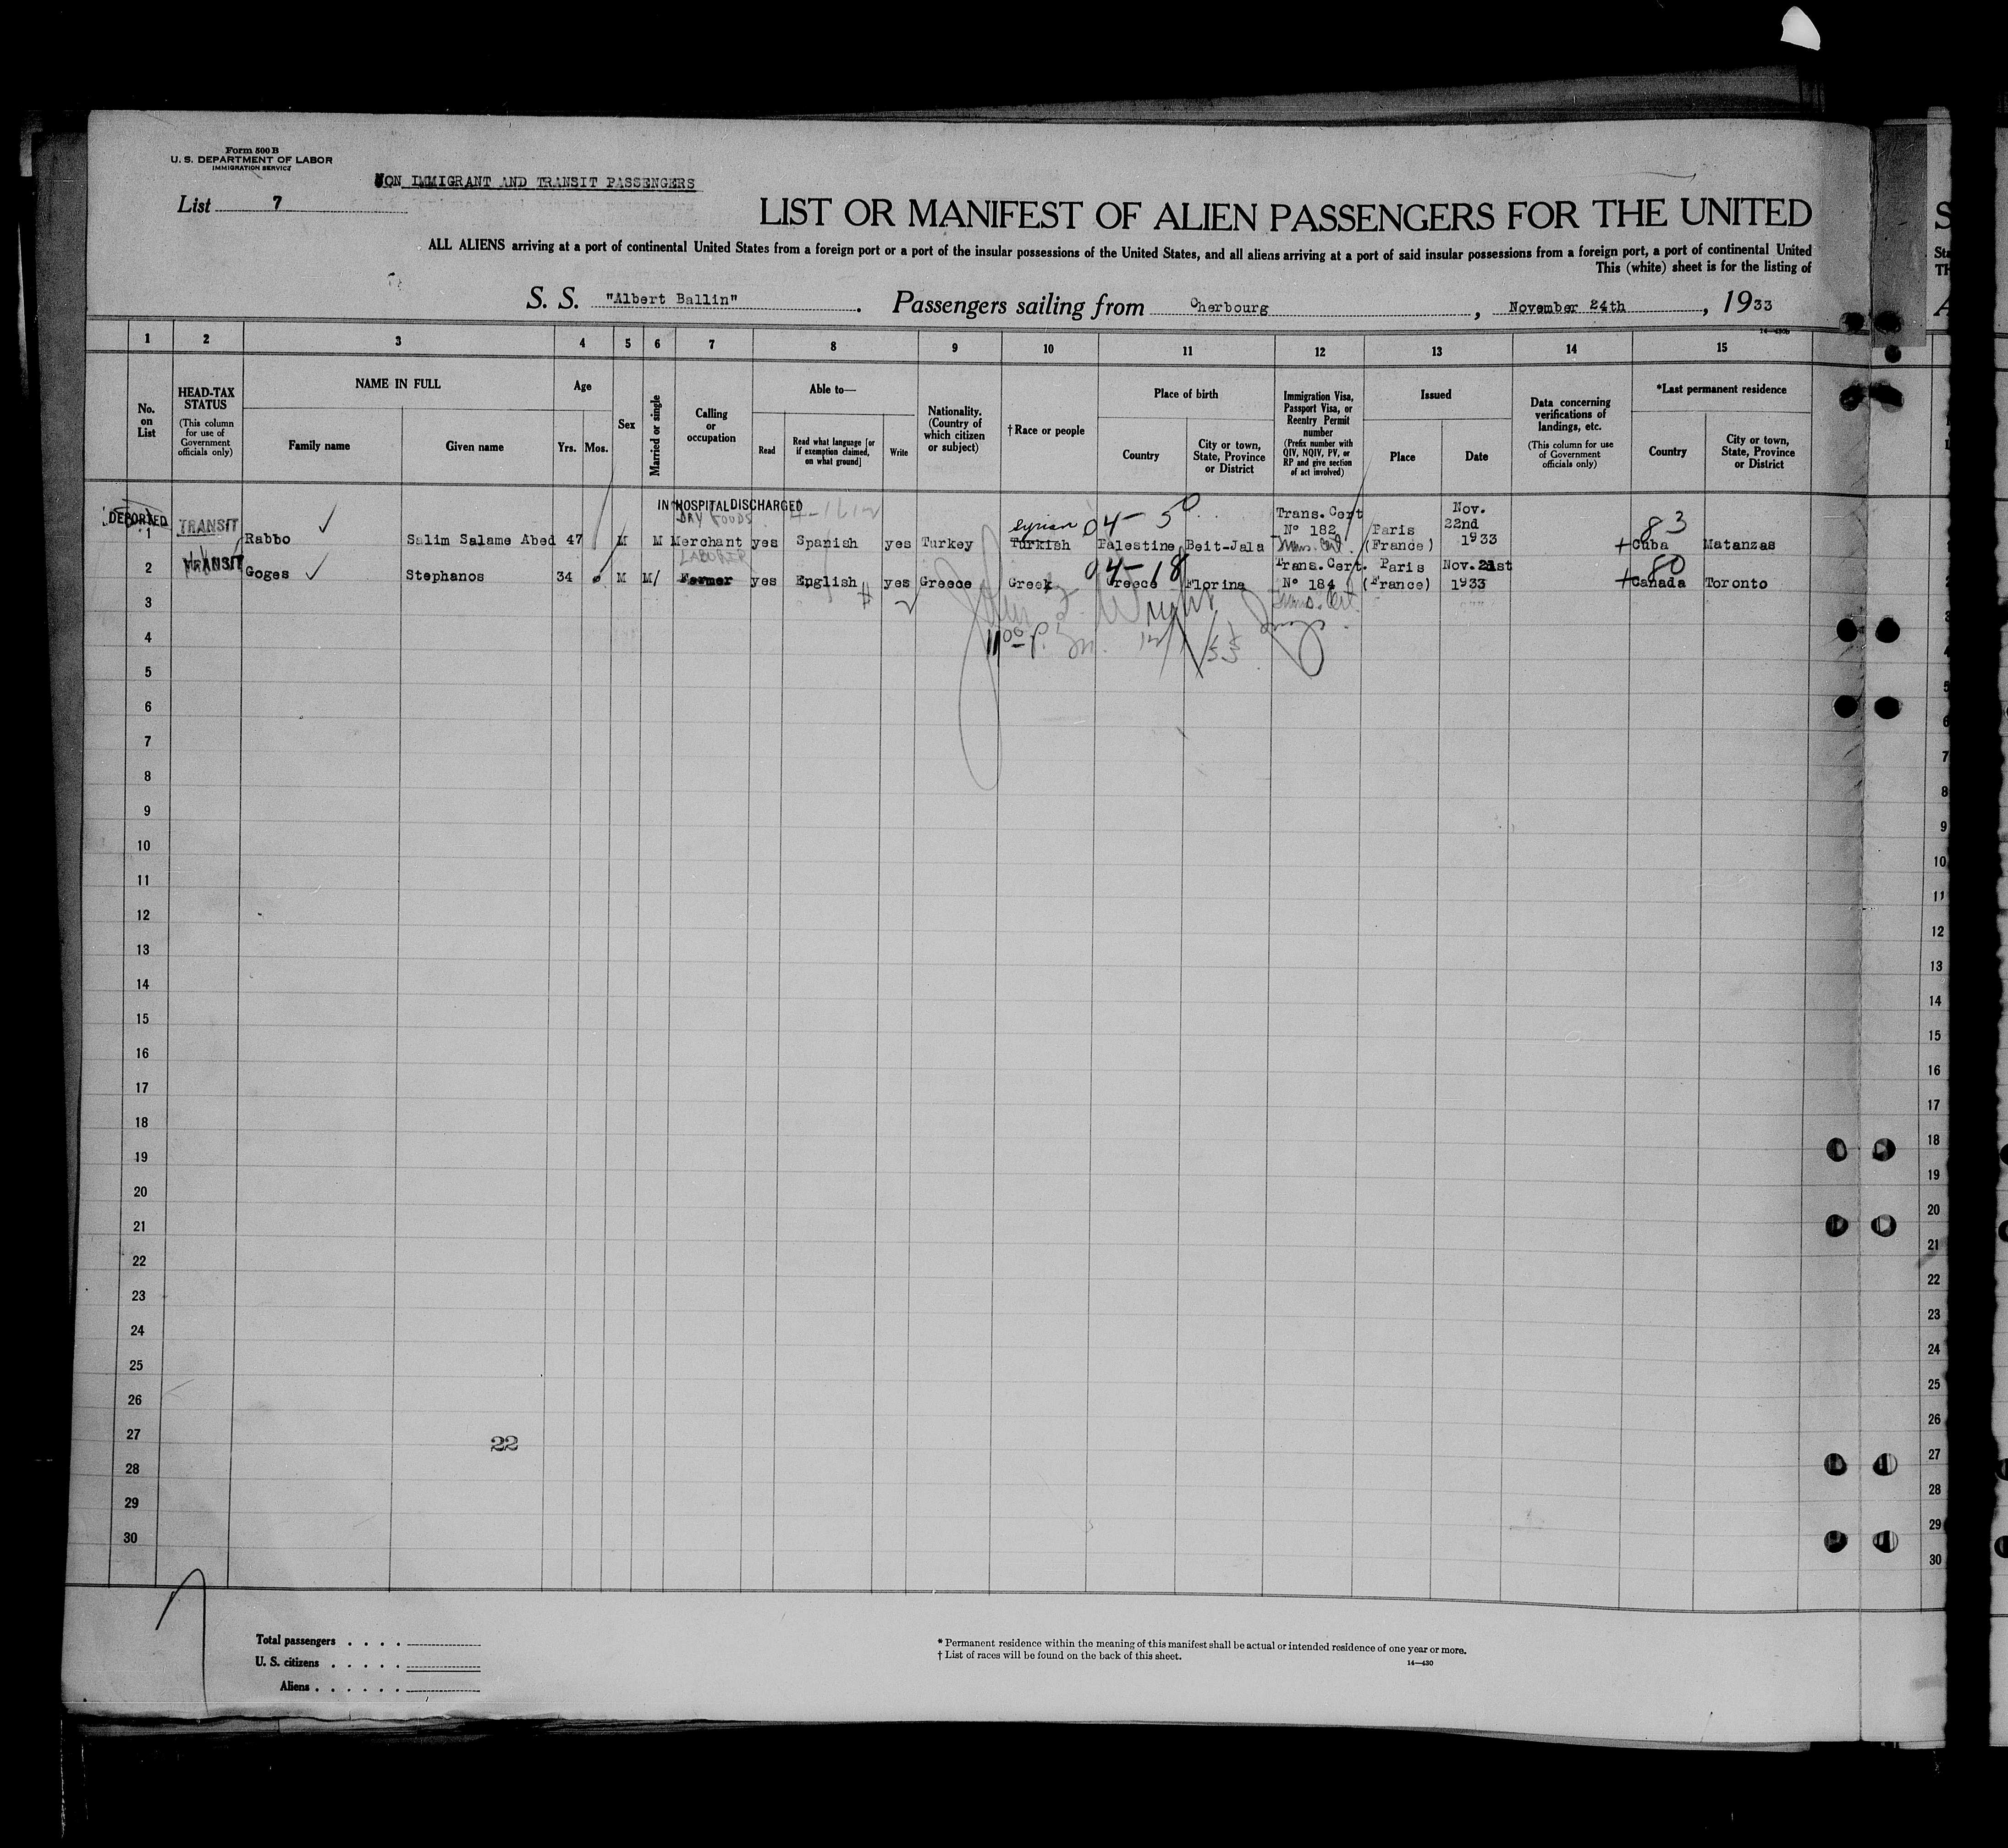 Form 500 B
U. S. DEPARTMENT OF LABOR
IMMIGRATION SERVICE
NON IMMIGRANT AND TRANSIT PASSENGERS
List 7
LIST OR MANIFEST OF ALIEN PASSENGERS FOR THE UNITED
ALL ALIENS arriving at a port of continental United States from a foreign port or a port of the insular possessions of the United States, and all aliens arriving at a port of said insular possessions from a foreign port, a port of continental United
This (white) sheet is for the listing of
S. S. "Albert Ballin". Passengers sailing from Cherbourg, November 24th, 1933
14—430b
1 2 3 4 5 6 7 8 9 10 11 12 13 14 15
No. on List
HEAD-TAX STATUS (This column for use of Government officials only)
NAME IN FULL
Family name Given name
Age
Yrs. Mos.
Sex
Married or single
Calling or occupation
Able to—
Read
Read what language [or if exemption claimed, on what ground]
Write
Nationality. (Country of which citizen or subject)
†Race or people
Place of birth
Country
City or town, State, Province or District
Immigration Visa, Passport Visa, or Reentry Permit number (Prefix number with QIV, NQIV, PV, or RP and give section of act involved)
Issued
Place Date
Data concerning verifications of landings, etc. (This column for use of Government officials only)
*Last permanent residence
Country
City or town, State, Province or District
IN HOSPITAL DISCHARGED
DEPORTED TRANSIT DRY GOODS Syrian 04-50 83
1 Rabbo Salim Salame Abed 47 M M Merchant yes Spanish yes Turkey Turkish Palestine Beit-Jala Trans. Cert Nº 182 Trans. Cert. Paris (France) Nov. 22nd 1933 +Cuba Matanzas
TRANSIT LABORER 04-18 80
2 Goges Stephanos 34 M M Farmer yes English yes Greece Greek Greece Florina Trans. Cert. Nº 184 Trans. Cert. Paris (France) Nov. 21st 1933 +Canada Toronto
3
4 11 00 P. M. 12/1/33
5
6
7
8
9
10
11
12
13
14
15
16
17
18
19
20
21
22
23
24
25
26
27 22
28
29
30
Total passengers
U. S. citizens
Aliens
* Permanent residence within the meaning of this manifest shall be actual or intended residence of one year or more.
† List of races will be found on the back of this sheet.
14—430